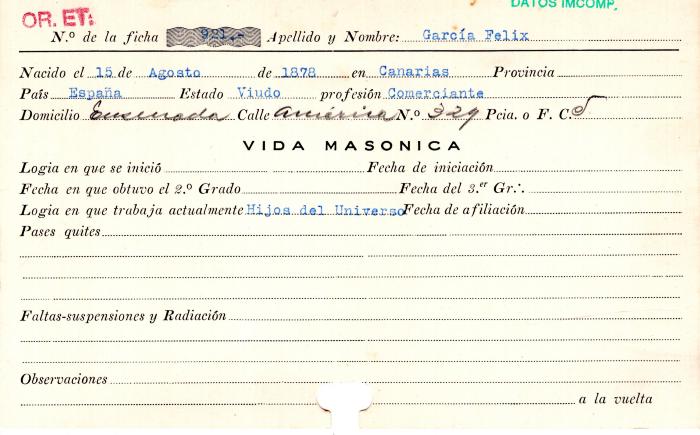 OR. ET:
DATOS IMCOMP.
N.º de la ficha 921.- Apellido y Nombre: García Felix
Nacido el 15 de Agosto de 1878 en Canarias Provincia
País España Estado Viudo profesión Comerciante
Domicilio Ensenada Calle América N.º 329 Pcia. o F. C. S
VIDA MASONICA
Logia en que se inició Fecha de iniciación
Fecha en que obtuvo el 2.º Grado Fecha del 3.er Gr.·.
Logia en que trabaja actualmente Hijos del Universo Fecha de afiliación
Pases quites
Faltas-suspensiones y Radiación
Observaciones
a la vuelta